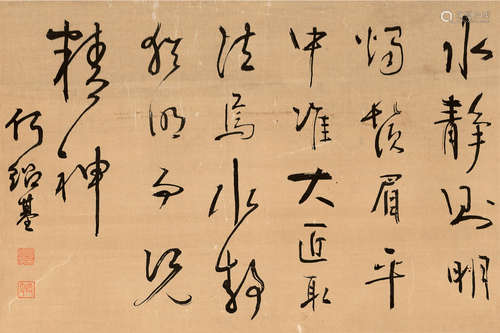 水静则明
烛鬚眉平
中准大匠取
法焉水静
犹明而况
精神
何绍基